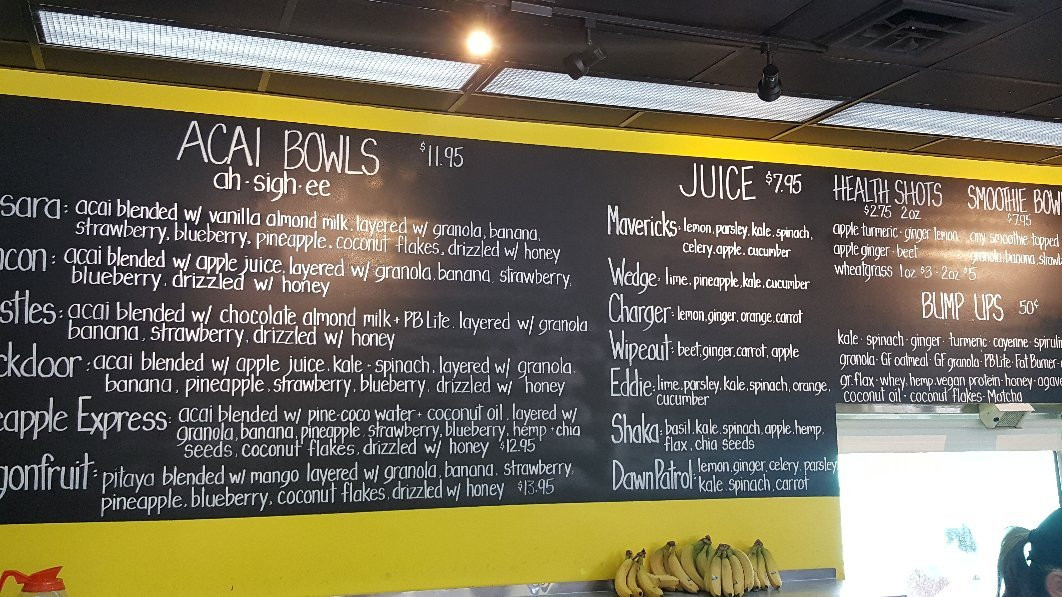 ACAI BOWLS $11.95
ah·sigh·ee
sara: acai blended w/ vanilla almond milk, layered w/ granola, banana,
strawberry, blueberry, pineapple, coconut flakes, drizzled w/ honey
acai blended w/ apple juice, layered w/ granola, banana, strawberry,
blueberry, drizzled w/ honey
stles: acai blended w/ chocolate almond milk + PB Lite, layered w/ granola
banana, strawberry, drizzled w/ honey
ckdoor: acai blended w/ apple juice, kale · spinach, layered w/ granola,
banana, pineapple, strawberry, blueberry, drizzled w/ honey
eapple Express: acai blended w/ pine-coco water + coconut oil, layered w/
granola, banana, pineapple, strawberry, blueberry, hemp + chia
seeds, coconut flakes, drizzled w/ honey $12.95
gonfruit: pitaya blended w/ mango layered w/ granola, banana, strawberry,
pineapple, blueberry, coconut flakes, drizzled w/ honey $13.95
JUICE $7.95
Mavericks: lemon, parsley, kale, spinach,
celery, apple, cucumber
Wedge: lime, pineapple, kale, cucumber
Charger: lemon, ginger, orange, carrot
Wipeout: beet, ginger, carrot, apple
Eddie: lime, parsley, kale, spinach, orange,
cucumber
Shaka: basil, kale, spinach, apple, hemp,
flax, chia seeds
Dawn Patrol: lemon, ginger, celery, parsley
kale, spinach, carrot
HEALTH SHOTS
$2.75 2oz
apple turmeric · ginger lemon
apple ginger · beet
wheatgrass 1oz $3 · 2oz $5
SMOOTHIE BOW
$7.95
any smoothie topped
granola, banana, strawb
BUMP UPS 50¢
kale · spinach · ginger · turmeric · cayenne · spirulin
granola · GF oatmeal · GF granola · PB Lite · Fat Burner ·
gr. flax · whey, hemp, vegan protein · honey · agave
coconut oil · coconut flakes · Matcha